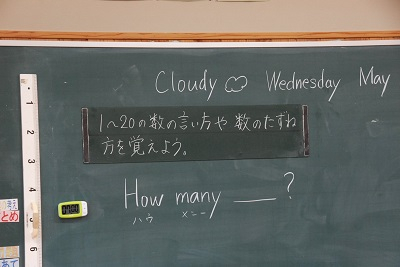 Cloudy Wednesday May
1〜20の数の言い方や数のたずね
方を覚えよう。
How many ___?
ハウ メニー
1
2
3
4
5
6
とめ
あて